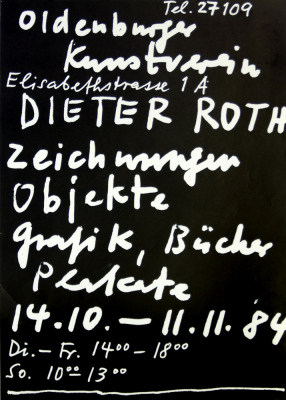 Tel. 27109
Oldenburger
Kunstverein
Elisabethstrasse 1 A
DIETER ROTH
Zeichnungen
Objekte
Grafik, Bücher
Plakate
14.10. – 11.11. 84
Di. – Fr. 14⁰⁰ – 18⁰⁰
So. 10⁰⁰ – 13⁰⁰